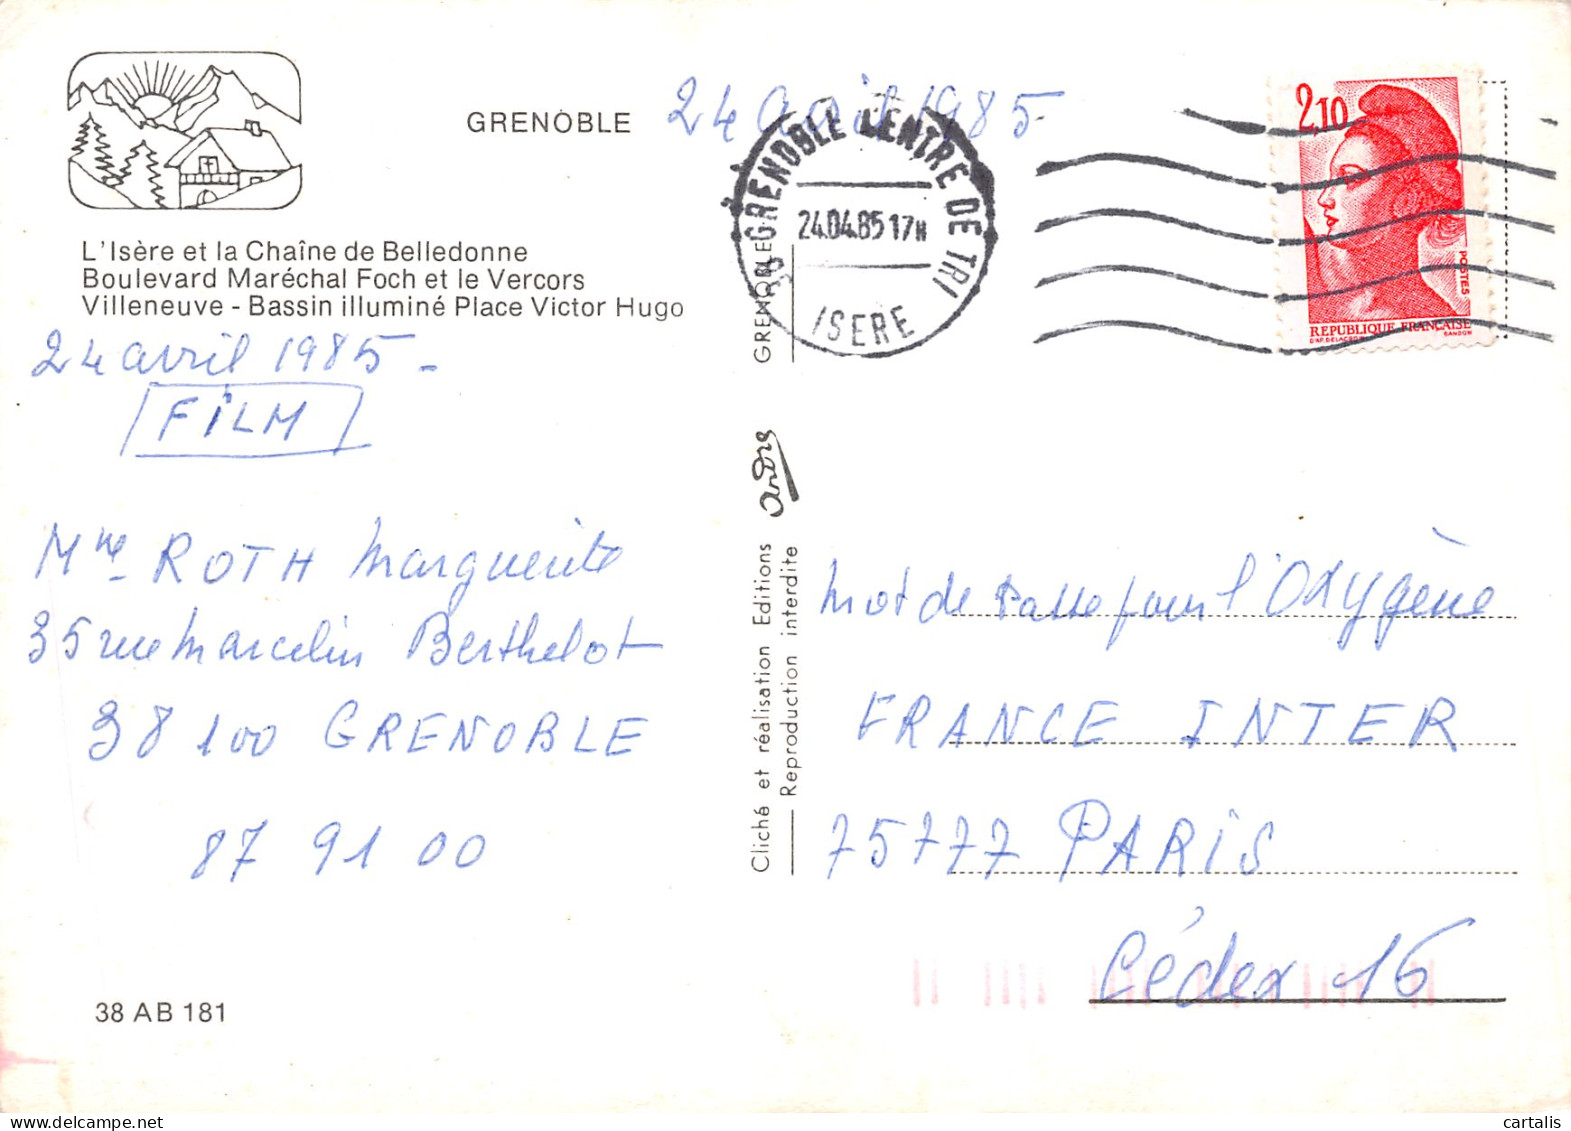 GRENOBLE
24 avril 1985
L'Isère et la Chaîne de Belledonne
Boulevard Maréchal Foch et le Vercors
Villeneuve - Bassin illuminé Place Victor Hugo
24 avril 1985 -
FILM
Mme ROTH Marguerite
35 rue Marcelin Berthelot
38100 GRENOBLE
87 91 00
38 AB 181
GRENOBLE
Cliché et réalisation Editions André
Reproduction interdite
38 GRENOBLE CENTRE DE TRI
24.04.85 17H
ISERE
2,10
POSTES
REPUBLIQUE FRANÇAISE
D'AP. DELACROIX GANDON
Mot de Passe pour l'Oxygène
FRANCE INTER
75777 PARIS
Cédex 16
cartalis